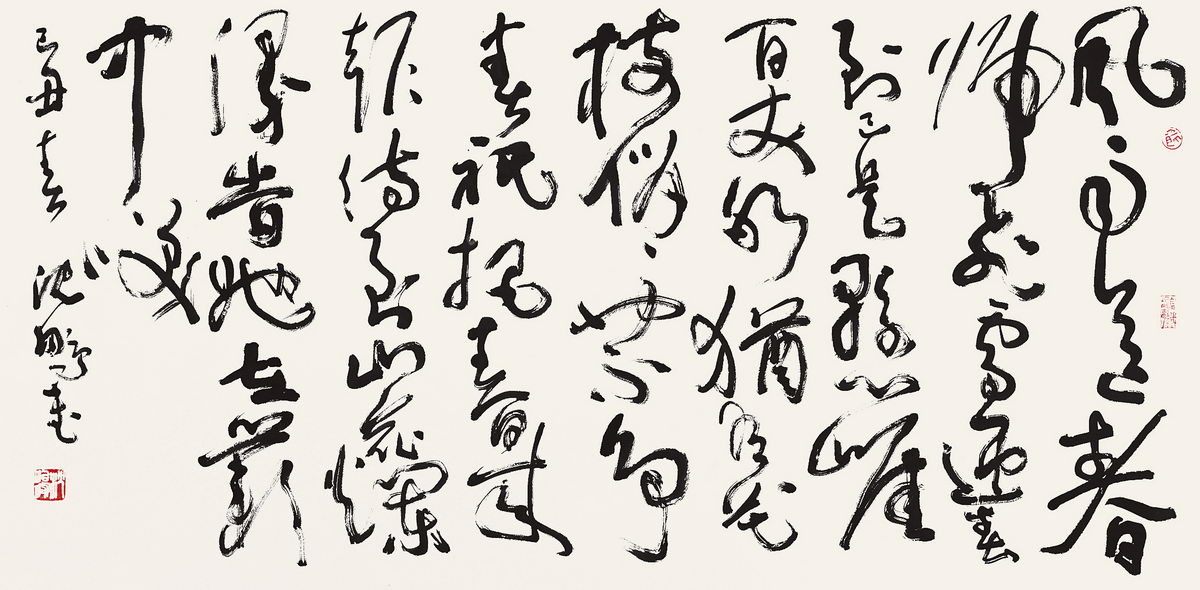 風雨送春
歸飛雪迎春
到已是懸崖
百丈冰猶有花
枝俏〻也不爭
春祇把春來
報待到山花爛
漫旹她在叢
中笑
己丑春 沈鵬書